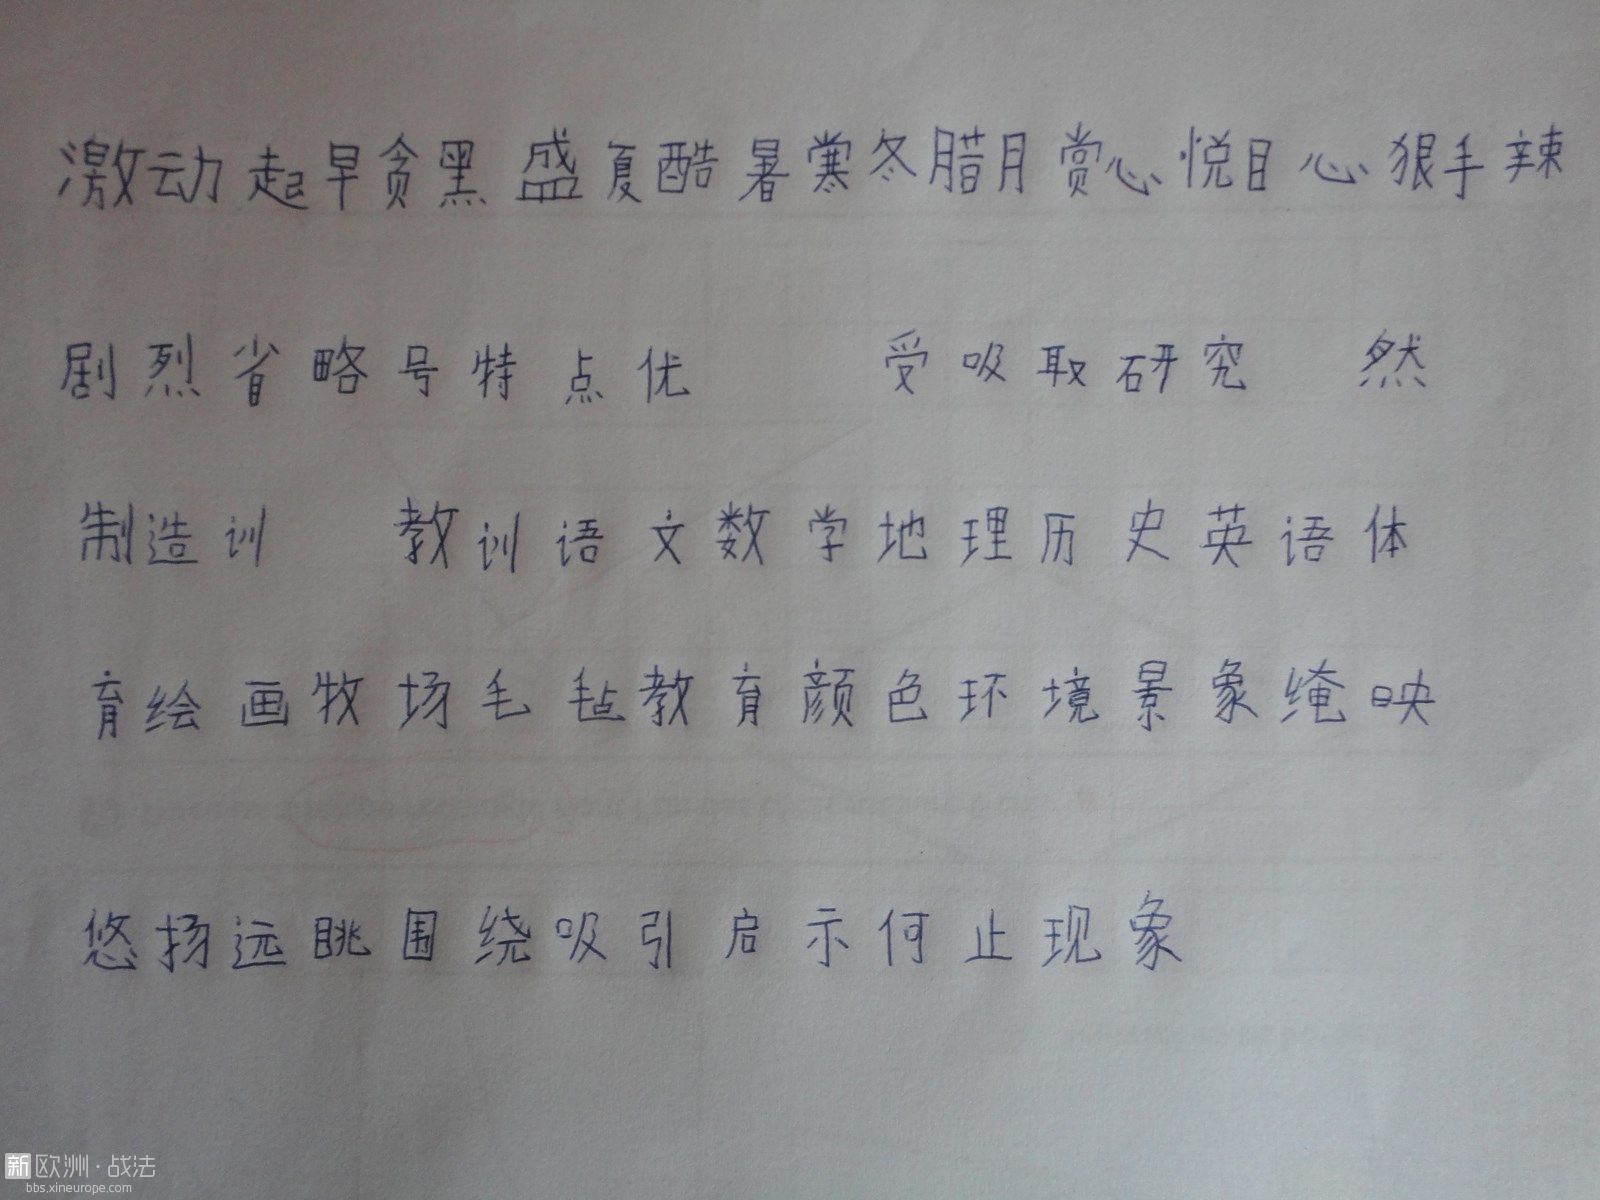 激动起早贪黑盛夏酷暑寒冬腊月赏心悦目心狠手辣
剧烈省略号特点优 受吸取研究 然
制造训 教训语文数学地理历史英语体
育绘画牧场毛毡教育颜色环境景象掩映
悠扬远眺围绕吸引启示何止现象
新欧洲·战法
bbs.xineurope.com